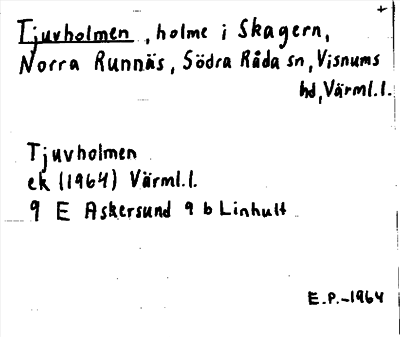 +
Tjuvholmen, holme i Skagern,
Norra Runnäs, Södra Råda sn, Visnums
hd, Värml.l.
Tjuvholmen
ek (1964) Värml.l.
9 E Askersund 9 b Linhult
E.P.-1964